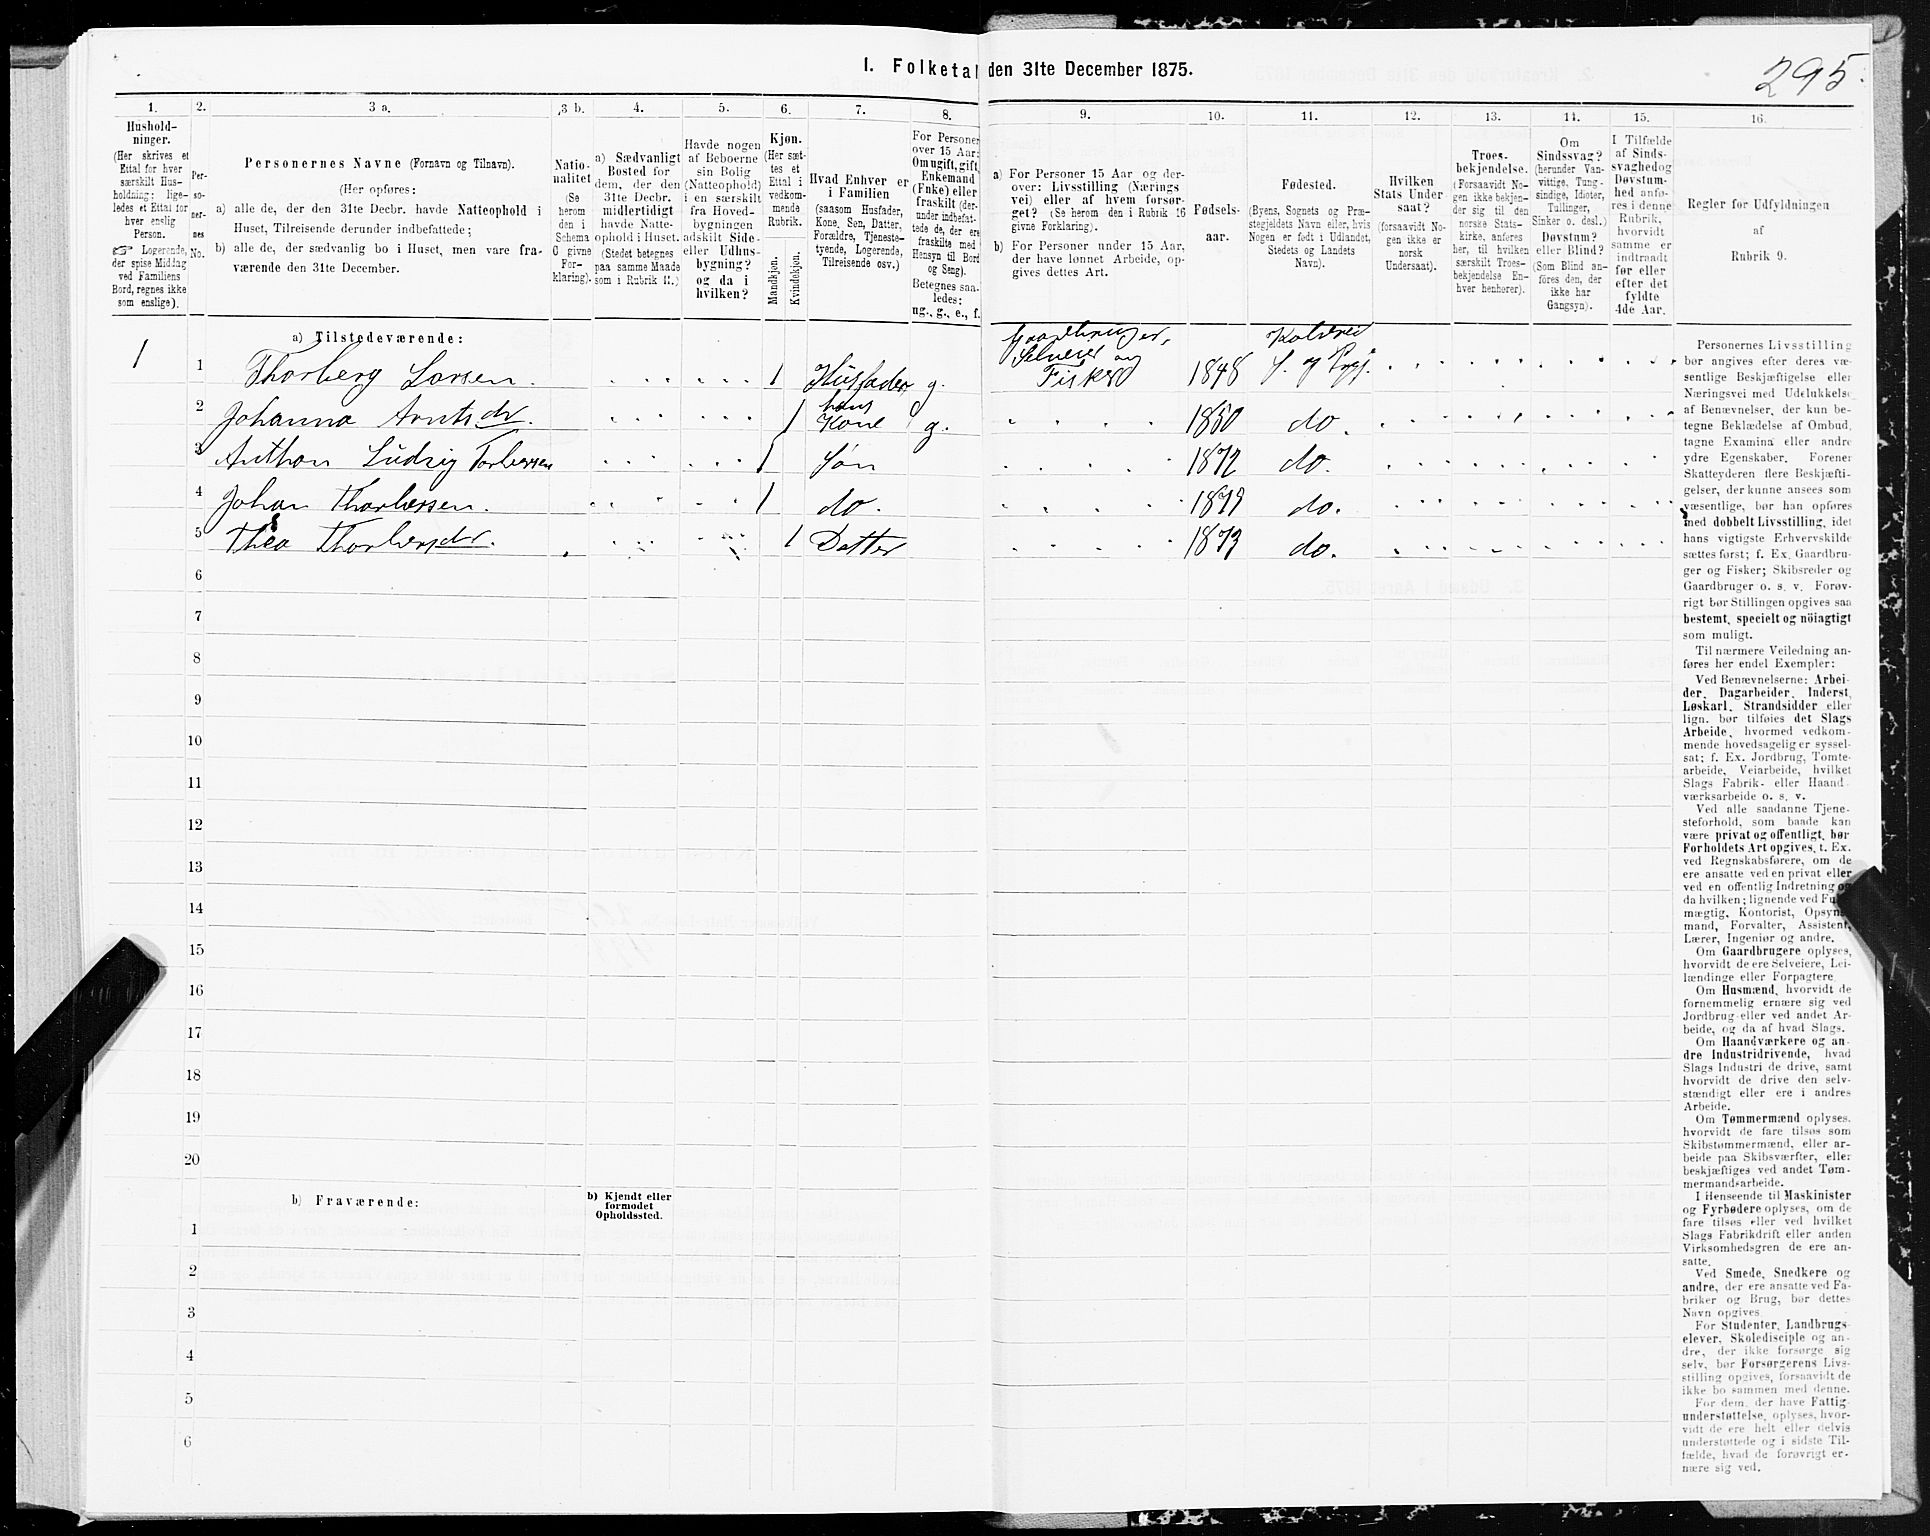 I. Folketal den 31te December 1875.
295.
1. 2. 3 a. 3 b. 4. 5. 6. 7. 8. 9. 10. 11. 12. 13. 14. 15. 16.
Hushold-
ninger.
(Her skrives et
Ettal for hver
særskilt Hus-
holdning; lige-
ledes et Ettal for
hver enslig
Person.
☞ Logerende,
der spise Middag
ved Familiens
Bord, regnes ikke
som enslige).
Per-
so-
ner-
nes
No.
Personernes Navne (Fornavn og Tilnavn).
(Her opføres:
a) alle de, der den 31te Decbr. havde Natteophold i
Huset, Tilreisende derunder indbefattede;
b) alle de, der sædvanlig bo i Huset, men vare fra-
værende den 31te December.
Natio-
nalitet
(Se
herom
den i
Schema
6 givne
For-
klaring).
a) Sædvanligt
Bosted for
dem, der den
31te Decbr.
midlertidigt
havde Natte-
ophold i Huset.
(Stedet betegnes
paa samme Maade
som i Rubrik 11.)
Havde nogen
af Beboerne
sin Bolig
(Natteophold)
i en særskilt
fra Hoved-
bygningen
adskilt Side-
eller Udhus-
bygning?
og da i
hvilken?
Kjøn.
(Her sæt-
tes et
Ettal i
vedkom-
mende
Rubrik.
Mandkjøn.
Kvindekjøn.
Hvad Enhver er
i Familien
(saasom Husfader,
Kone, Søn, Datter,
Forældre, Tjeneste-
tyende, Logerende,
Tilreisende osv.)
For Personer
over 15 Aar:
Om ugift, gift,
Enkemand
(Enke) eller
fraskilt (der-
under indbefat-
tede de, der ere
fraskilte med
Hensyn til Bord
og Seng).
Betegnes saa-
ledes:
ug., g., e., f.
a) For Personer 15 Aar og der-
over: Livsstilling (Nærings
vei) eller af hvem forsør-
get? (Se herom den i Rubrik 16
givne Forklaring).
b) For Personer under 15 Aar,
der have lønnet Arbeide, op-
gives dettes Art.
Fødsels-
aar.
Fødested.
(Byens, Sognets og Præ-
stegjeldets Navn eller, hvis
Nogen er født i Udlandet,
Stedets og Landets
Navn).
Hvilken
Stats Under
saat?
(forsaavidt No-
gen ikke er
norsk
Undersaat).
Troes-
bekjendelse.
(Forsaavidt No-
gen ikke bekjen-
der sig til den
norske Stats-
kirke, anføres
her, til hvilken
særskilt Troes-
bekjendelse En-
hver henhører).
Om
Sindssvag?
(herunder Van-
vittige, Tung-
sindige, Idioter,
Tullinger,
Sinker o. desl.)
Døvstum?
eller Blind?
(Som Blind an-
føres den, der
ikke har
Gangsyn).
I Tilfælde
af Sinds-
svaghed og
Døvstum-
hed anfø-
res i denne
Rubrik,
hvorvidt
samme er
indtraadt
før eller
efter det
fyldte
4de Aar.
Regler for Udfyldningen
af
Rubrik 9.
a) Tilstedeværende:
1 1 Thorberg Larsen. 1 Husfader g. Gaardbruger, Selveier og Fisker 1848 S. og Pgj.
2 Johanna Arntsdr. 1 hans Kone g. 1850 do.
3 Anthon Ludvig Torbersen 1 Søn 1872 do.
4 Johan Thorbersen. 1 do. do.
5 Thea Thorbersdr. 1 Datter 1873 do.
6
7
8
9
10
11
12
13
14
15
16
17
18
19
20
b) Fraværende:
b) Kjendt eller
formodet
Opholdssted.
1
2
3
4
5
6
Personernes Livsstilling
bør angives efter deres væ-
sentlige Beskjæftigelse eller
Næringsvei med Udelukkelse
af Benævnelser, der kun be-
tegne Beklædelse af Ombud,
tagne Examina eller andre
ydre Egenskaber. Forener
Skatteyderen flere Beskjæfti-
gelser, der kunne ansees som
væsentlige, bør han opføres
med dobbelt Livsstilling, idet
hans vigtigste Erhvervskilde
sættes først; f. Ex. Gaardbru-
ger og Fisker; Skibsreder og
Gaardbruger o. s. v. Forøv-
rigt bør Stillingen opgives saa
bestemt, specielt og nöiagtigt
som muligt.
Til nærmere Veiledning an-
føres her endel Exempler:
Ved Benævnelserne: Arbei-
der, Dagarbeider, Inderst,
Løskarl, Strandsidder eller
lign. bør tilføies det Slags
Arbeide, hvormed vedkom-
mende hovedsagelig er syssel-
sat; f. Ex. Jordbrug, Tomte-
arbeide, Veiarbeide, hvilket
Slags Fabrik- eller Haand-
værksarbeide o. s. v.
Ved alle saadanne Tjene-
steforhold, som baade kan
være privat og offentligt, bør
Forholdets Art opgives, t. Ex.
ved Regnskabsførere, om de
ere ansatte ved en privat eller
ved en offentlig Indretning og
da hvilken; lignende ved
mægtig, Kontorist,
mand, Forvalter, Assistent,
Lærer, Ingeniør og andre.
Om Gaardbrugere oplyses,
hvorvidt de ere Selveiere, Lei-
lændinge eller Forpagtere
Om Husmænd, hvorvidt de
fornemmelig ernære sig ved
Jordbrug eller ved andet Ar-
beide, og da af hvad Slags.
Om Haandværkere og an-
dre Industridrivende, hvad
Slags Industri de drive, samt
hvorvidt de drive den selv-
stændigt eller ere i andres
Arbeide.
Om Tømmermænd oplyses,
hvorvidt de fare tilsøs som
Skibstømmermænd, eller ar-
beide paa Skibsværfter, eller
beskjæftiges ved andet Tøm-
mermandsarbeide.
I Henseende til Maskinister
og Fyrbødere oplyses, om de
fare tilsøs eller ved hvilket
Slags Fabrikdrift eller anden
Virksomhedsgren de ere an-
satte.
Ved Smede, Snedkere og
andre, der ere ansatte ved Fa-
briker og Brug, bør dettes
Navn opgives.
For Studenter, Landbrugs-
elever, Skoledisciple og an-
dre, der ikke forsørge sig
selv, bør Forsørgerens Livs-
stilling opgives, forsaavidt de
ikke bo sammen med denne.
For dem, der have Fattig-
understøttelse, oplyses, hvor-
vidt de ere helt eller delvis
understøttede og i sidste Til-
fælde, hvad de forøvrigt er-
nære sig ved.